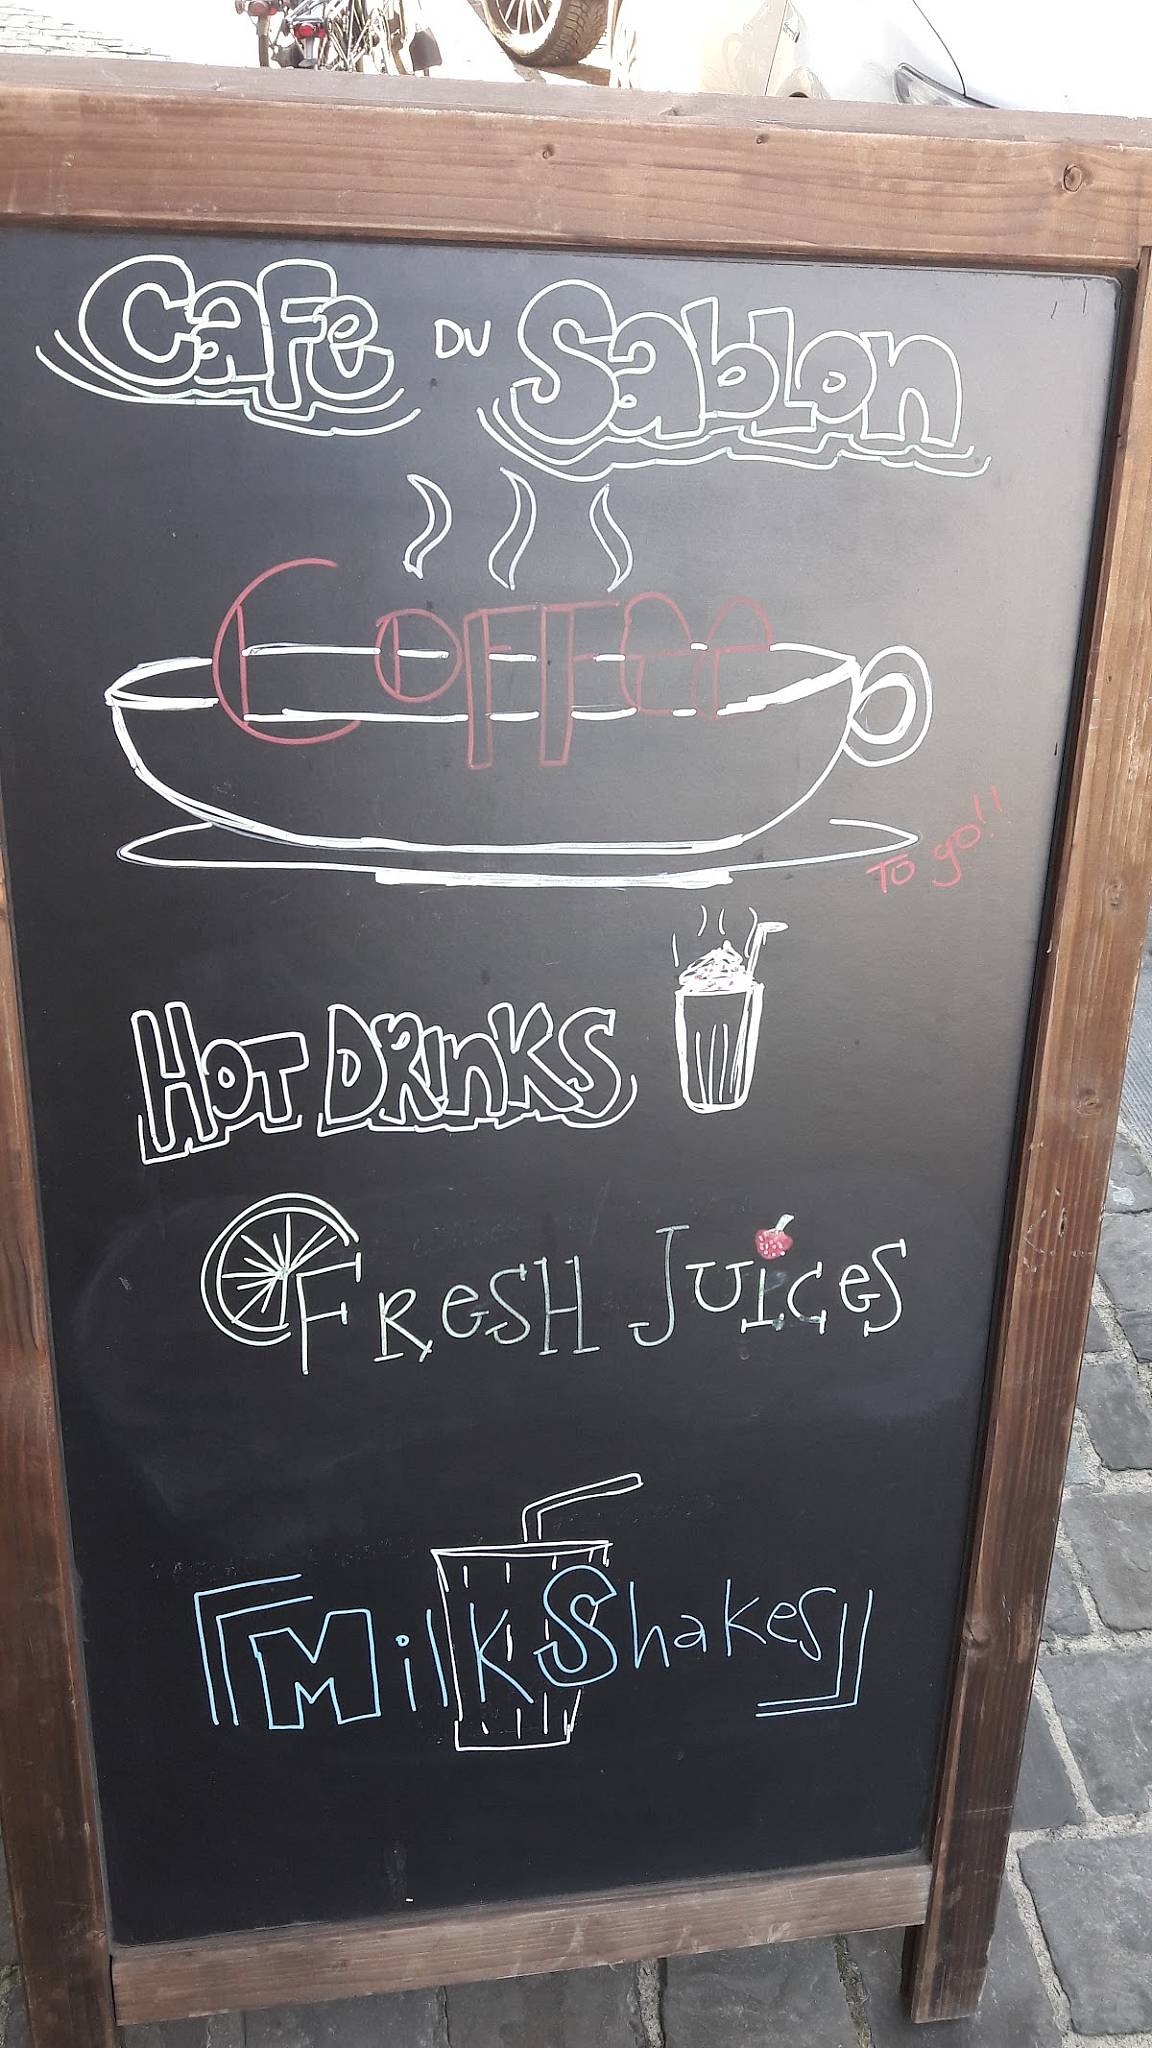 Cafe DU Sablon
Coffee
To go!!
HOT DRINKS
FRESH JUICES
MilkShakes